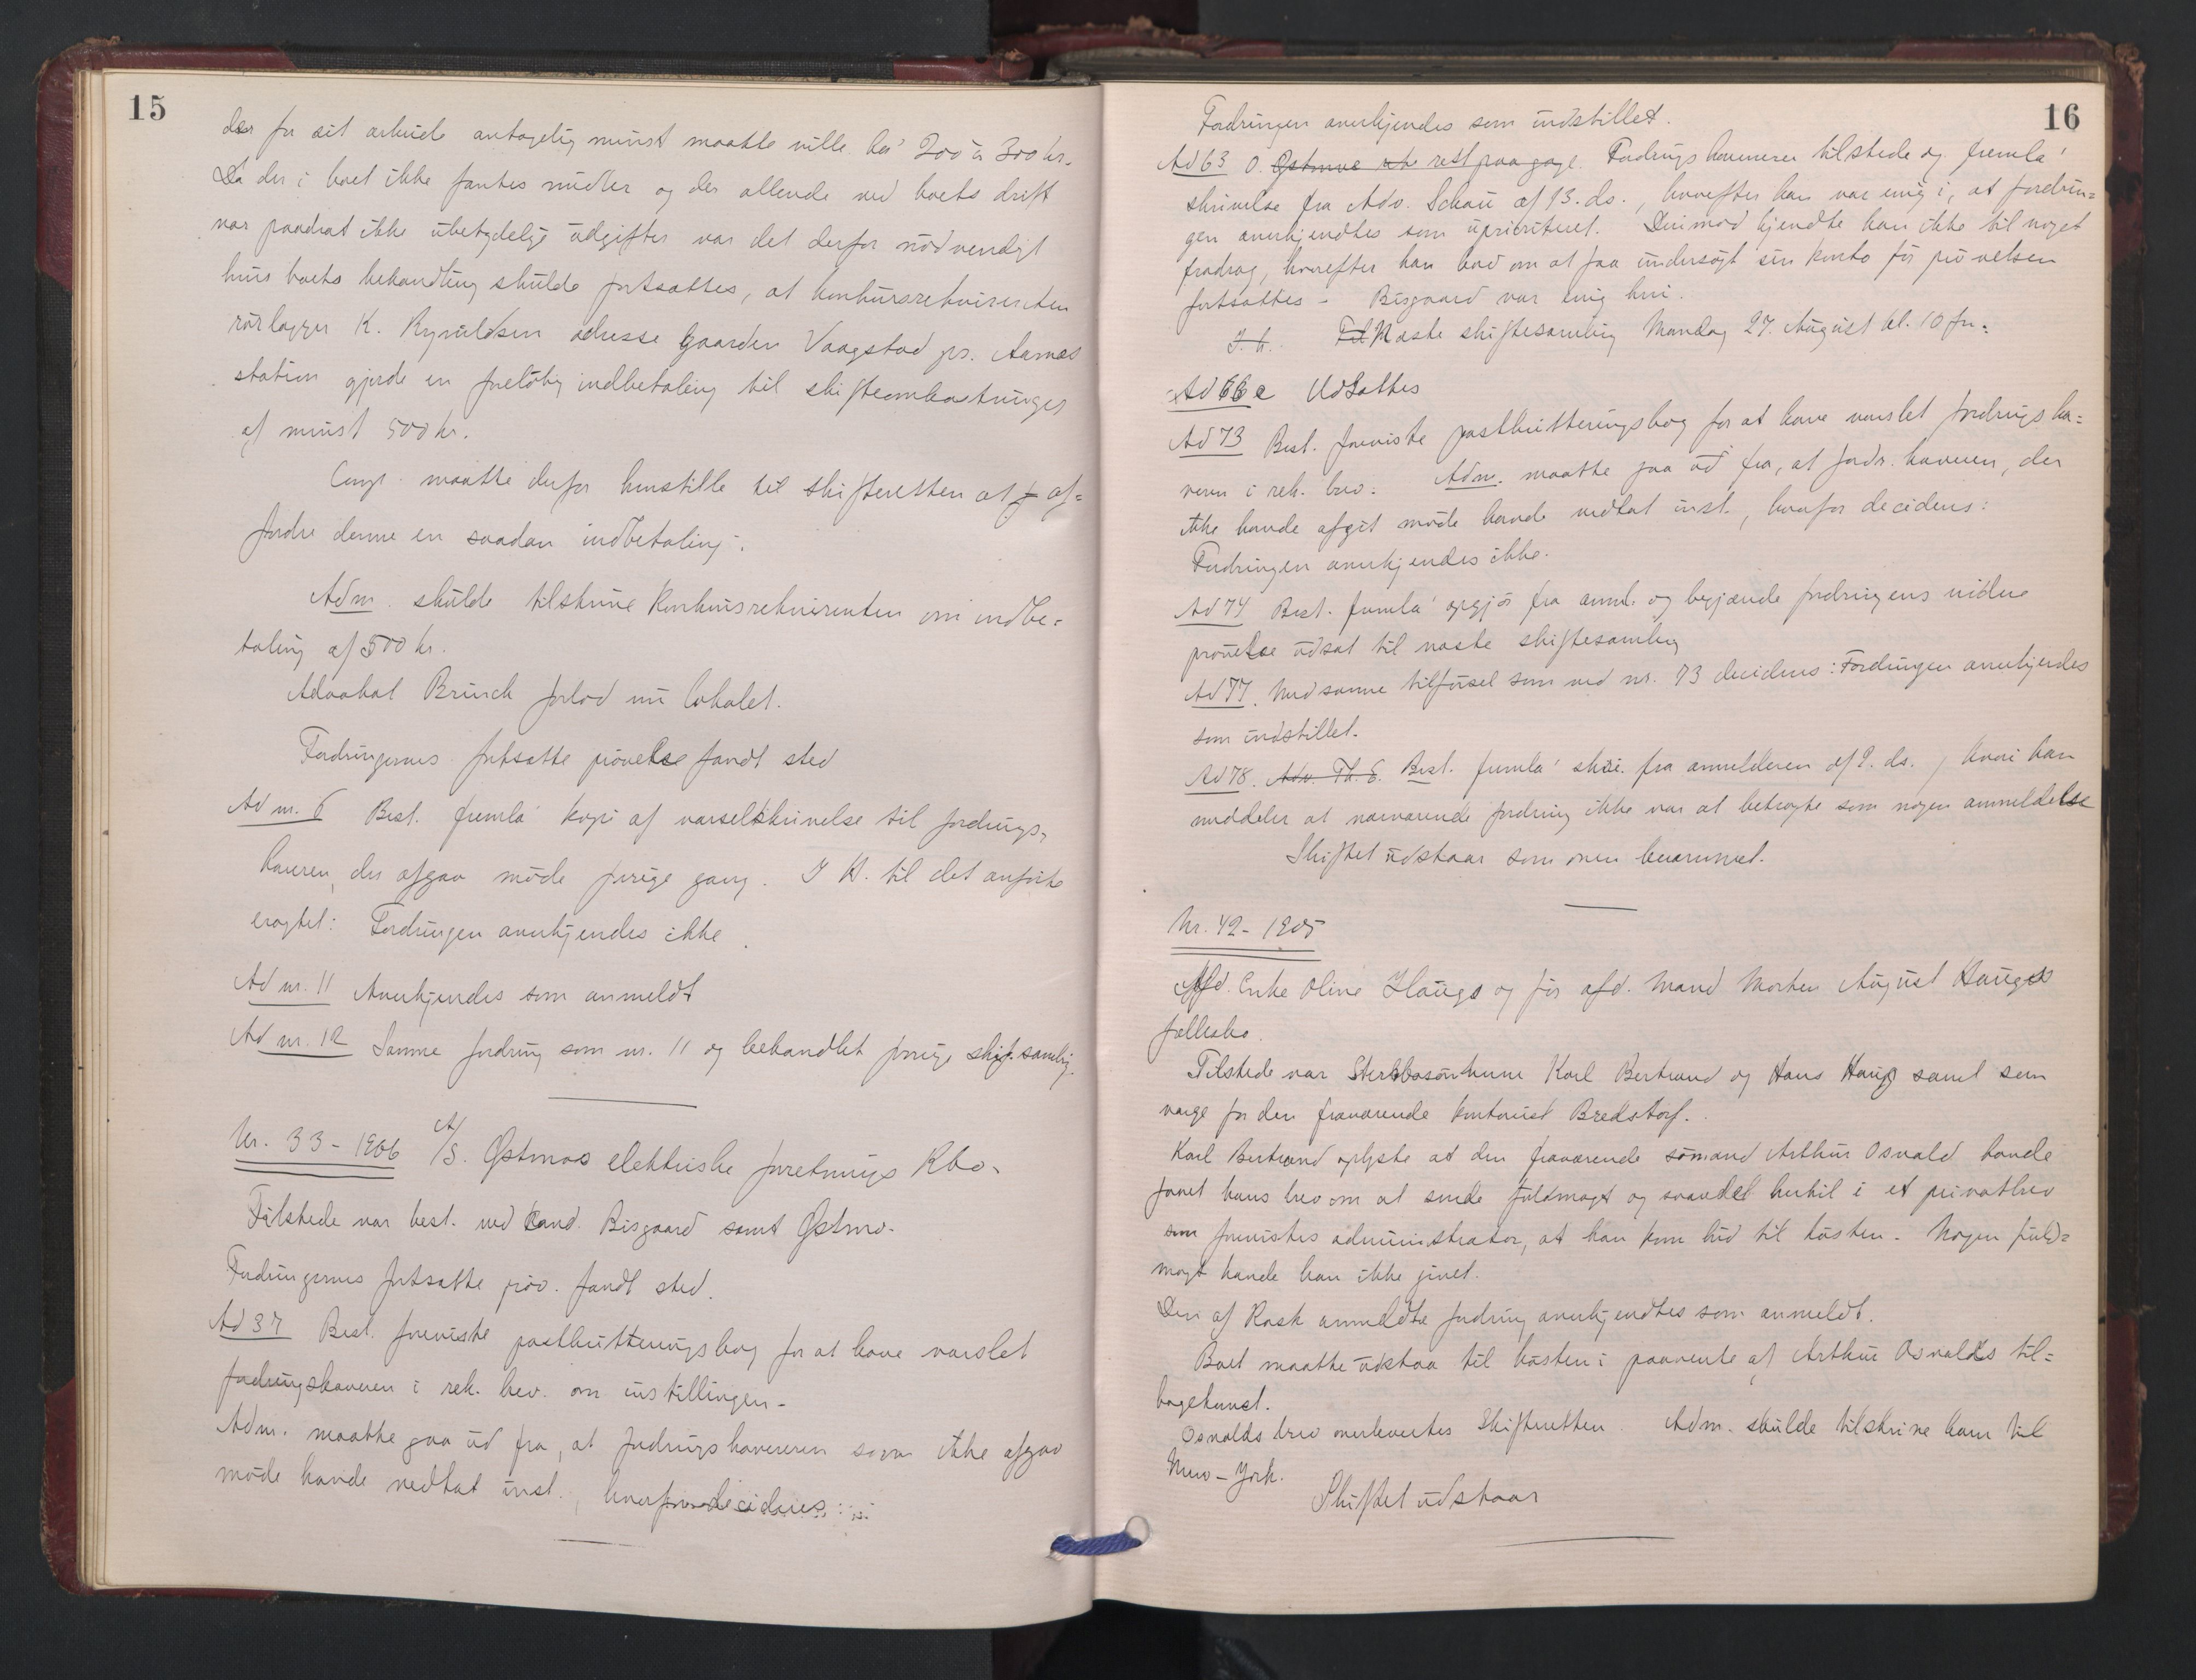 15
der for sit arbeide antagelig minst maatte ville ha' 200 à 300 kr.
Da der i boet ikke fantes midler og der allerede ved boets drift
var paadrat ikke ubetydelige udgifter var det derfor nödvendigt
hvis boets behandling skulde fortsættes, at konkursrekvirenten
rörlægger K. adresse gaarden Vaagstad pr. Aarnes
station gjorde en forelöbig indbetaling til skifteomkostninger
af minst 500 kr.
Comp. maatte derfor henstille til skifteretten at af=
fordre denne en saadan indbetaling.
Adm. skulde tilskrive konkursrekvirenten om indbe=
taling af 500 kr.
Advokat Brinck forlod nu lokalet.
Fordringernes fortsatte prövelse fandt sted
Ad nr. 6 Best. fremla' kopi af varselskrivelse til fordrings=
haveren, der afgav möde forrige gang. I H. til det anförte
eragtet: Fordringen anerkjendes ikke.
Ad nr. 11 Anerkjendes som anmeldt
Ad nr. 12 Samme fordring som nr. 11 og behandlet forrige skift.samling.
Nr. 33-1906 A/S. Østmos elektriske forretnings Kbo.
Tilstede var best. ved Cand. Bisgaard samt Østmo.
Fordringernes fortsatte pröv. fandt sted.
Ad 37 Best. foreviste postkvitteringsbog for at have varslet
fordringshaveren i rek. brev. om instillingen.
Adm. maatte gaa ud fra, at fordringshaveren som ikke afgav
möde havde vedtat inst., hvorfor decideres:
16
Fordringen anerkjendes som indstillet.
Ad 63 O. Østmoe rest paa gage. Fordringshaveren tilstede og fremla'
skrivelse fra Adv. Schau af 13. ds., hvorefter han var enig i, at fordrin=
gen anerkjendtes som uprioriteret. Derimod kjendte han ikke til noget
fradrag, hvorefter han bad om at faa undersögt sin konto för prövelsen
fortsattes. Bisgaard var enig heri.
J. h. Næste skiftesamling Mandag 27. August kl. 10 for=
Ad 66 e Udsattes
Ad 73 Best. foreviste postkvitteringsbog for at have varslet fordringsha=
veren i rek. brev. Adm. maatte gaa ud fra, at fordr. haveren, der
ikke havde afgit möde havde vedtat inst., hvorfor decideres:
Fordringen anerkjendes ikke.
Ad 74 Best. fremla' opgjör fra anml. og begjærede fordringens videre
prövelse udsat til næste skiftesamling
Ad 77. Med samme tilförsel som ved nr. 73 decideres: Fordringen anerkjendes
som indstillet.
Ad 78. Adv. Th. E. Best. fremla' skriv. fra anmelderen af 2. ds., hvori han
meddeler at nærværende fordring ikke var at betragte som nogen anmeldelse
Skiftet udstaar som oven berammet.
Nr. 42-1905
Afd. Enke Oline Haugs og för afd. Mand Morten August Haugs
fællesbo.
Tilstede var Sterbbosönnerne Karl Bertrand og Hans Haug samt som
verge for den fraværende kontorist Bredstorf.
Karl Bertrand oplyste at den fraværende sömand Arthur Osvald havde
faaet hans brev om at sende fuldmagt og svarede hertil i et privatbrev
som forevistes administrator, at han kom hid til hösten. Nogen fuld=
magt havde han ikke givet.
Den af Rask anmeldte fordring anerkjendtes som anmeldt.
Boet maatte udstaa til hösten i paavente af Arthur Osvalds til=
bagekomst.
Osvalds brev overleveretes Skifteretten. Adm. skulde tilskrive ham til
New-York.
Skiftet udstaar